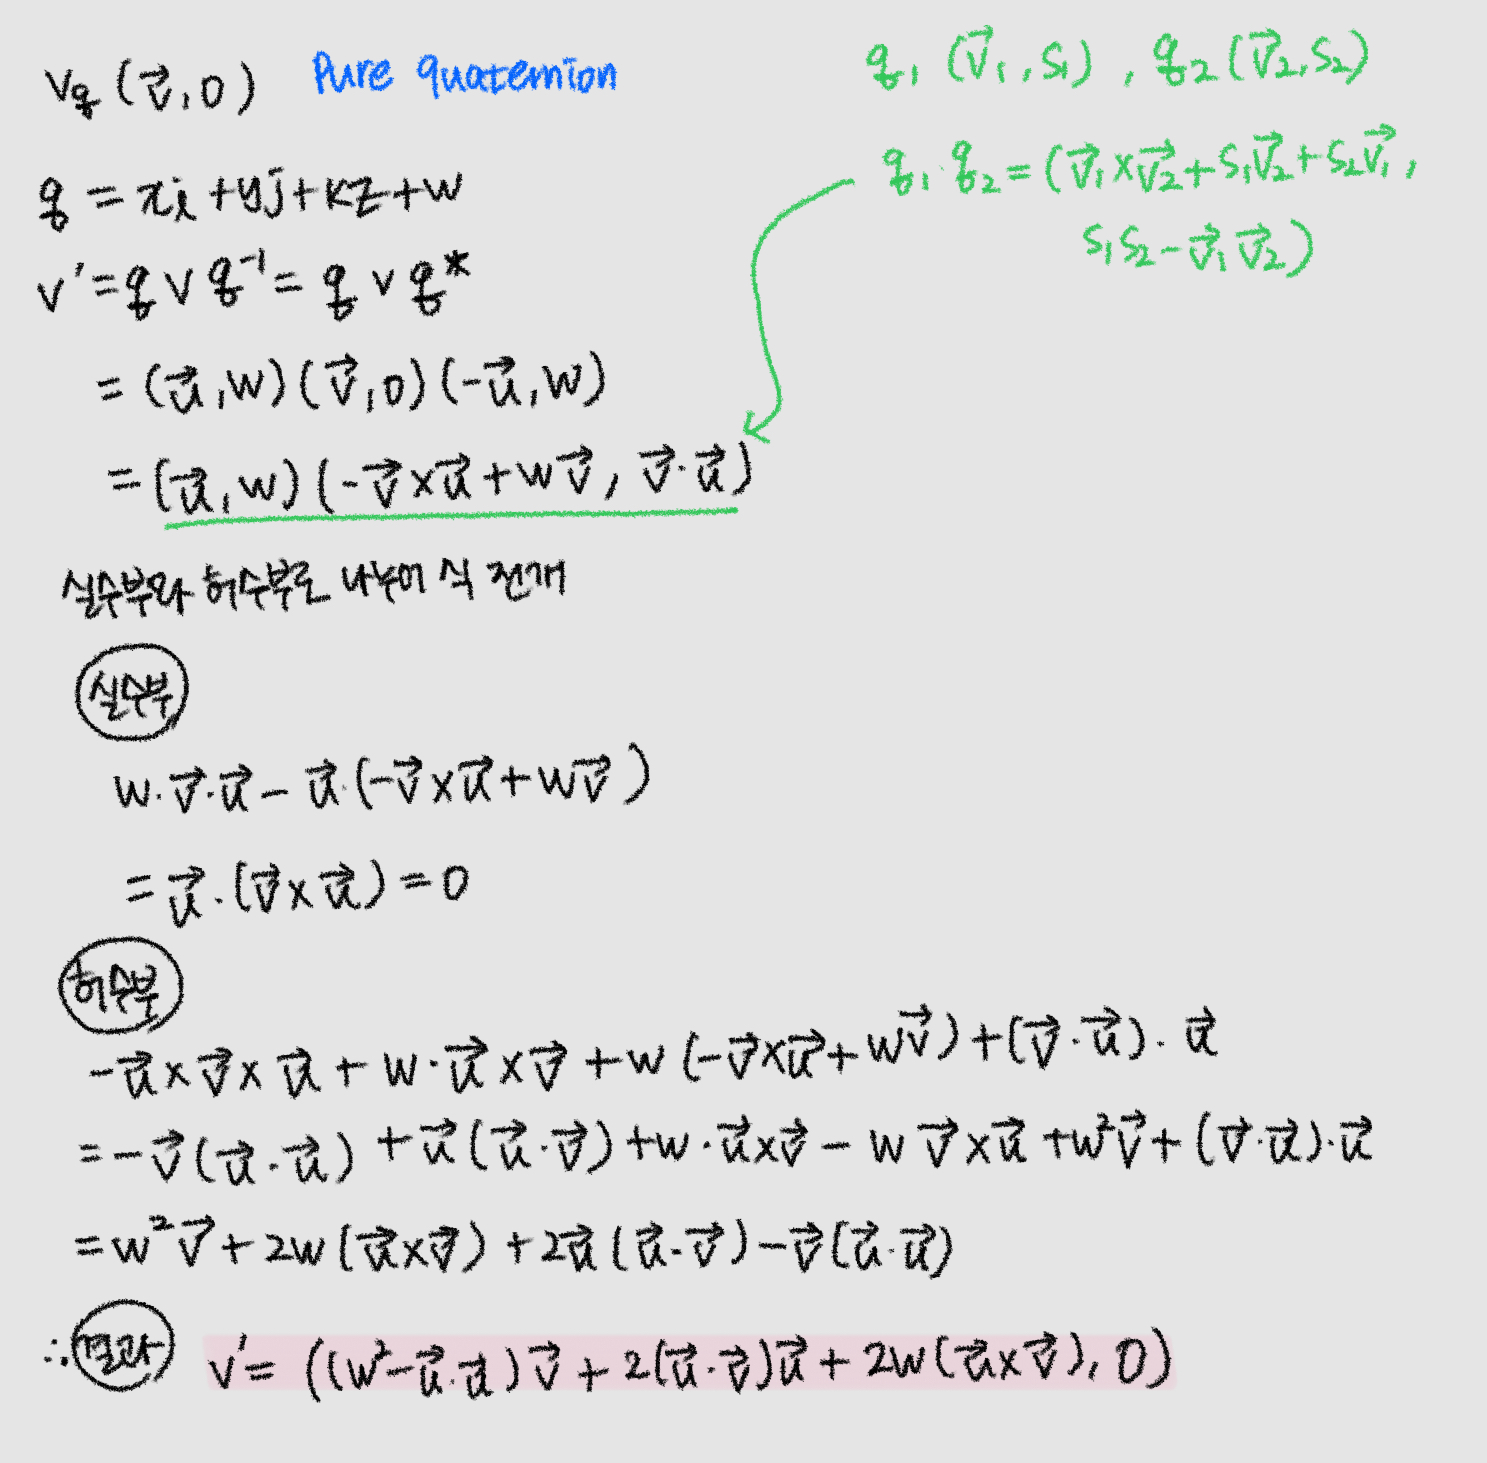 v_q (v⃗, 0) Pure quaternion
q₁ (v⃗₁, s₁), q₂ (v⃗₂, s₂)
q₁ · q₂ = (v⃗₁ × v⃗₂ + s₁v⃗₂ + s₂v⃗₁,
s₁s₂ - v⃗₁ v⃗₂)
q = xi + yj + kz + w
v' = q v q⁻¹ = q v q*
= (u⃗, w) (v⃗, 0) (-u⃗, w)
= (u⃗, w) (-v⃗ × u⃗ + w v⃗, v⃗ · u⃗)
실수부와 허수부로 나누어 식 전개
실수부
w · v⃗ · u⃗ - u⃗ · (-v⃗ × u⃗ + w v⃗)
= u⃗ · (v⃗ × u⃗) = 0
허수부
-u⃗ × v⃗ × u⃗ + w · u⃗ × v⃗ + w (-v⃗ × u⃗ + w v⃗) + (v⃗ · u⃗) · u⃗
= -v⃗ (u⃗ · u⃗) + u⃗ (u⃗ · v⃗) + w · u⃗ × v⃗ - w v⃗ × u⃗ + w² v⃗ + (v⃗ · u⃗) · u⃗
= w² v⃗ + 2w (u⃗ × v⃗) + 2u⃗ (u⃗ · v⃗) - v⃗ (u⃗ · u⃗)
∴ 결과 v' = ((w² - u⃗ · u⃗) v⃗ + 2(u⃗ · v⃗) u⃗ + 2w (u⃗ × v⃗), 0)